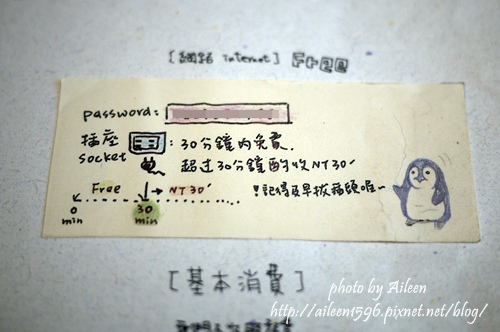 [網路 Internet] Free
password:
插座 : 30分鐘內免費.
socket 超过30分鐘酌收NT30
Free → NT30 !記得及早拔插頭喔~
0 min 30 min
[基本消費]
photo by Aileen
http://aileen1596.pixnet.net/blog/